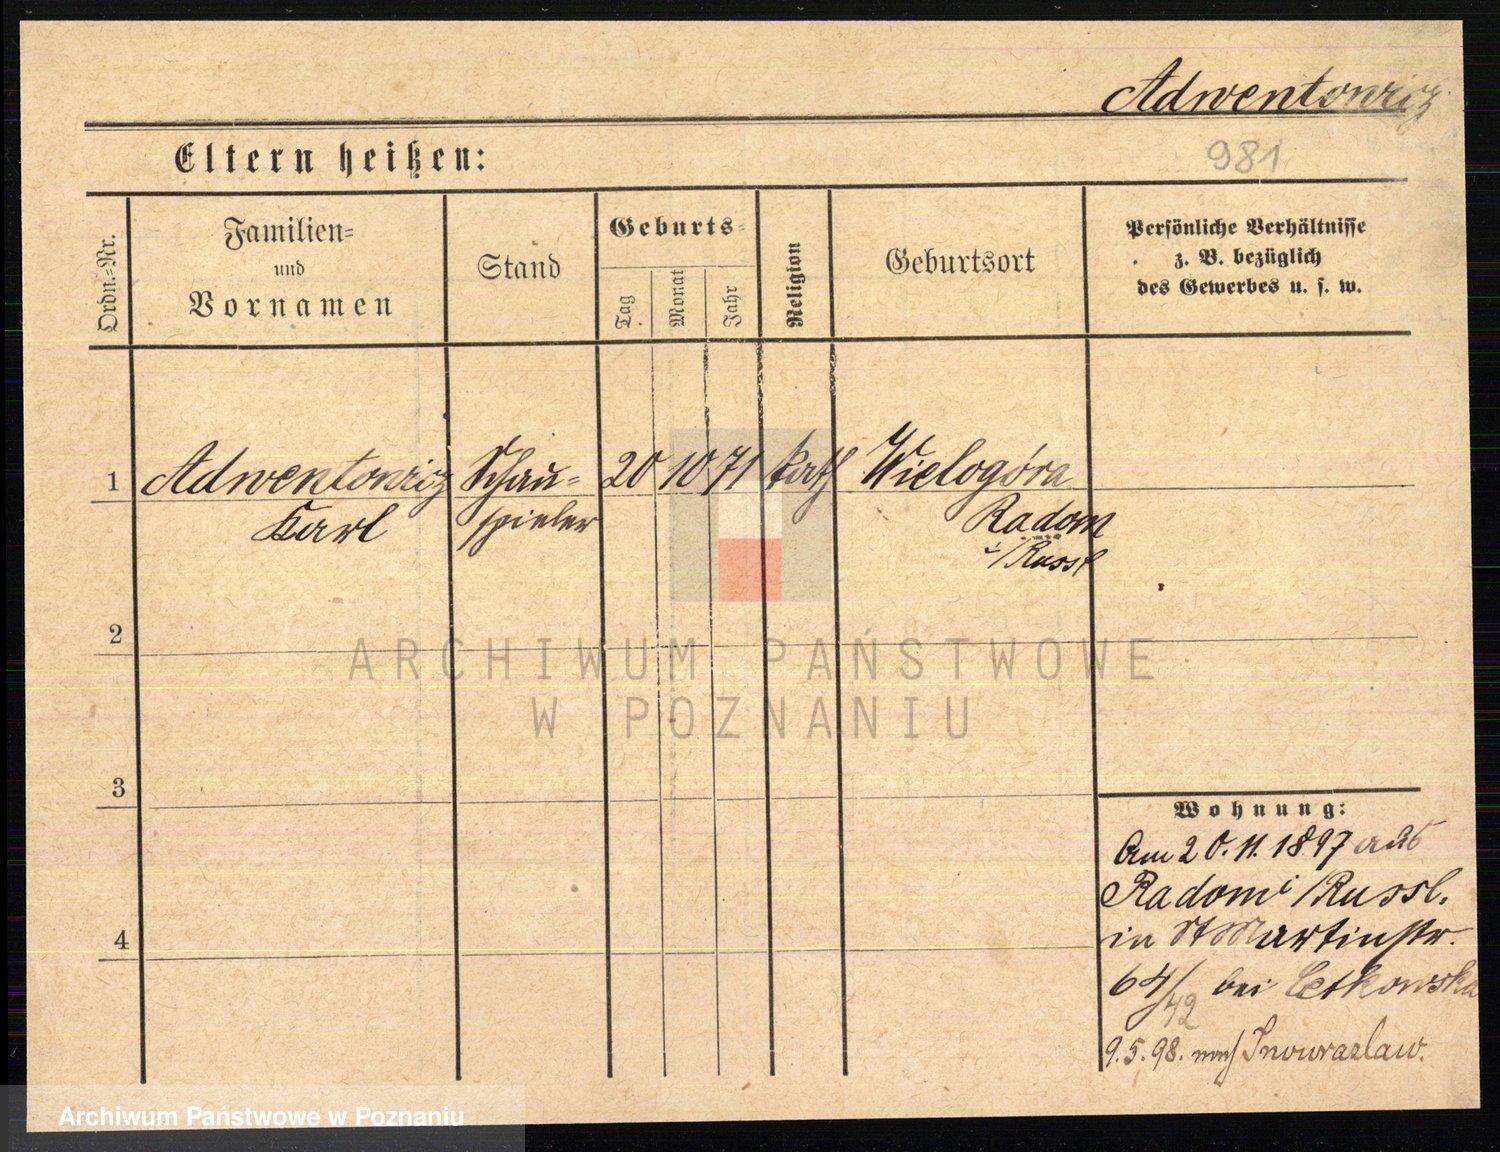 Adwentowicz
981
Eltern heißen:
Ordn.=Nr.
Familien=
und
Vornamen
Stand
Geburts=
Tag
Monat
Jahr
Religion
Geburtsort
Persönliche Verhältnisse
z. B. bezüglich
des Gewerbes u. s. w.
1
Adwentowicz
Karl
Schau=
spieler
20
10
71
kath
Wielogóra
Radom
i/Russl
2
ARCHIWUM PAŃSTWOWE
W POZNANIU
3
4
Wohnung:
Am 20.11.1897 aus
Radom i/Russl.
in St Martinstr.
64/42 bei
9.5.98. nach Inowrazlaw.
Archiwum Państwowe w Poznaniu